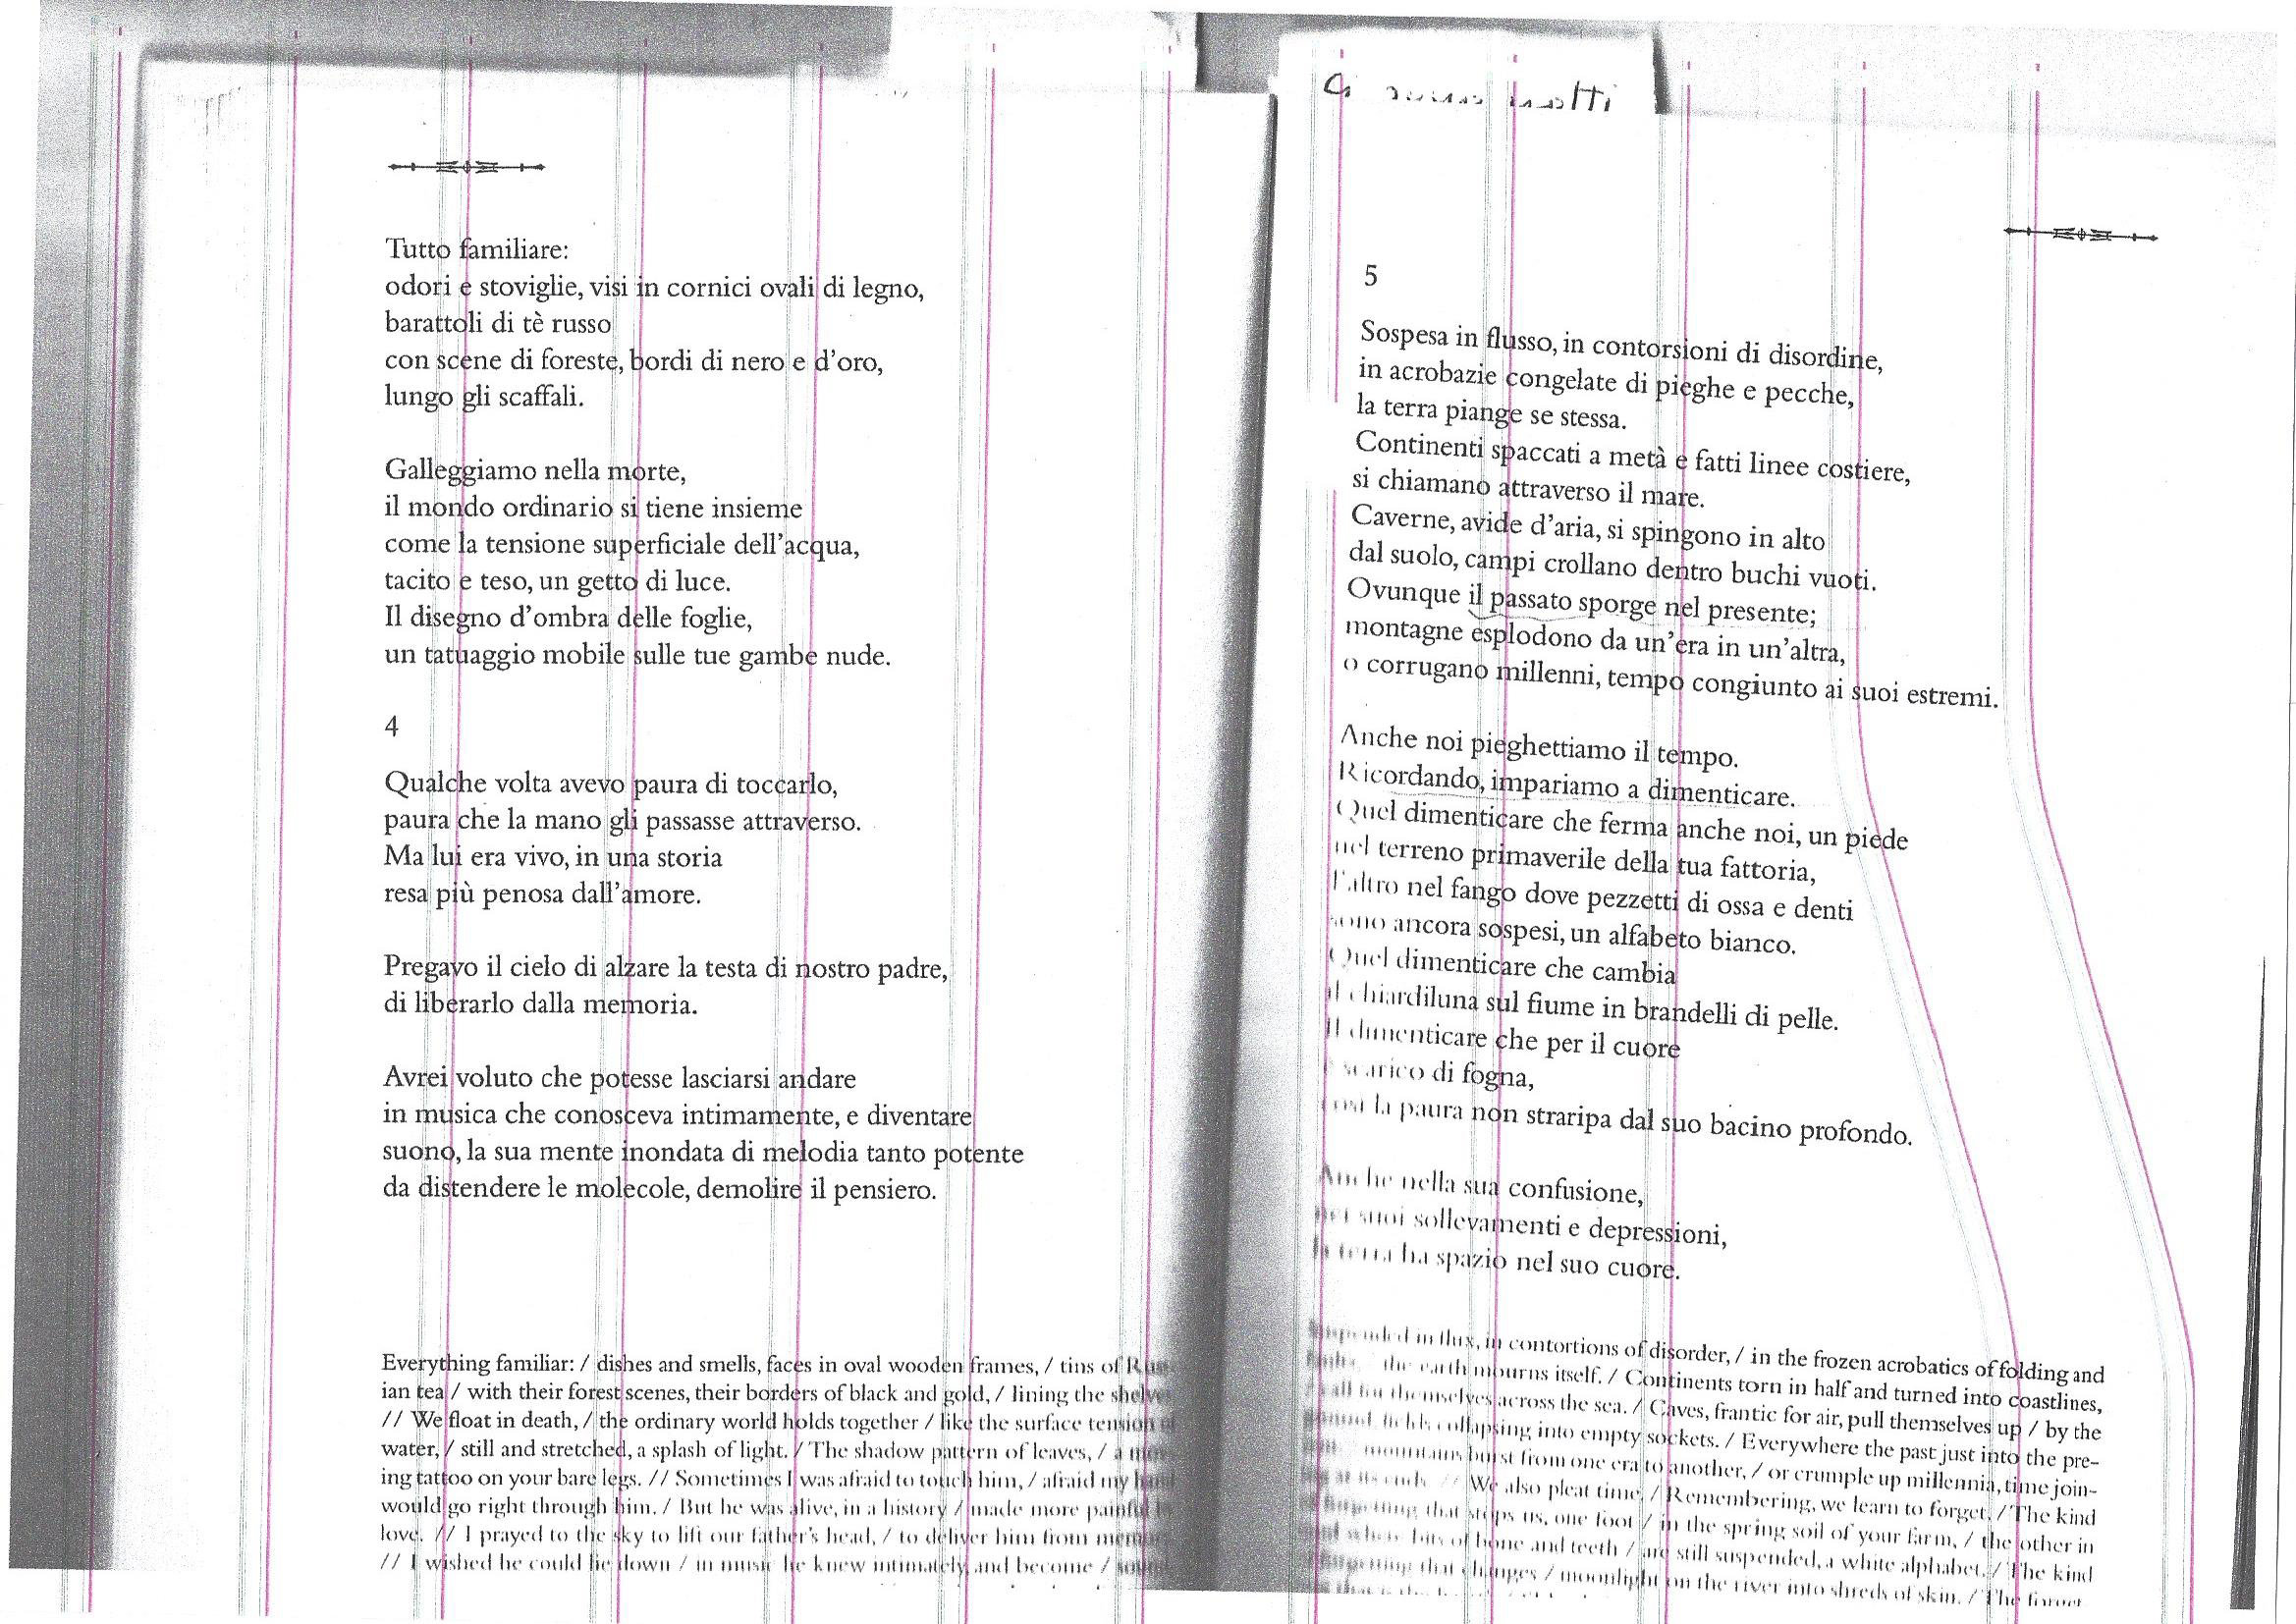 Tutto familiare:
odori e stoviglie, visi in cornici ovali di legno,
barattoli di tè russo
con scene di foreste, bordi di nero e d'oro,
lungo gli scaffali.
Galleggiamo nella morte,
il mondo ordinario si tiene insieme
come la tensione superficiale dell'acqua,
tacito e teso, un getto di luce.
Il disegno d'ombra delle foglie,
un tatuaggio mobile sulle tue gambe nude.
4
Qualche volta avevo paura di toccarlo,
paura che la mano gli passasse attraverso.
Ma lui era vivo, in una storia
resa più penosa dall'amore.
Pregavo il cielo di alzare la testa di nostro padre,
di liberarlo dalla memoria.
Avrei voluto che potesse lasciarsi andare
in musica che conosceva intimamente, e diventare
suono, la sua mente inondata di melodia tanto potente
da distendere le molecole, demolire il pensiero.
Everything familiar: / dishes and smells, faces in oval wooden frames, / tins of
ian tea / with their forest scenes, their borders of black and gold, / lining the shelves
// We float in death, / the ordinary world holds together / like the surface tension of
water, / still and stretched, a splash of light. / The shadow pattern of leaves, / a
ing tattoo on your bare legs. // Sometimes I was afraid to touch him, / afraid my hand
would go right through him. / But he was alive, in a history / made more painful
love. // I prayed to the sky to lift our father's head, / to deliver him from
// I wished he could lie down / in music he knew intimately, and become /
5
Sospesa in flusso, in contorsioni di disordine,
in acrobazie congelate di pieghe e pecche,
la terra piange se stessa.
Continenti spaccati a metà e fatti linee costiere,
si chiamano attraverso il mare.
Caverne, avide d'aria, si spingono in alto
dal suolo, campi crollano dentro buchi vuoti.
Ovunque il passato sporge nel presente;
montagne esplodono da un'era in un'altra,
o corrugano millenni, tempo congiunto ai suoi estremi.
Anche noi pieghettiamo il tempo.
Ricordando, impariamo a dimenticare.
Quel dimenticare che ferma anche noi, un piede
nel terreno primaverile della tua fattoria,
l'altro nel fango dove pezzetti di ossa e denti
sono ancora sospesi, un alfabeto bianco.
Quel dimenticare che cambia
il chiardiluna sul fiume in brandelli di pelle.
Il dimenticare che per il cuore
scarico di fogna,
così la paura non straripa dal suo bacino profondo.
Anche nella sua confusione,
nei suoi sollevamenti e depressioni,
la terra ha spazio nel suo cuore.
in flux, in contortions of disorder, / in the frozen acrobatics of folding and
the earth mourns itself. / Continents torn in half and turned into coastlines,
themselves across the sea. / Caves, frantic for air, pull themselves up / by the
collapsing into empty sockets. / Everywhere the past just into the pre-
mountains burst from one era to another, / or crumple up millennia, time join-
// We also pleat time. / Remembering, we learn to forget. / The kind
that stops us, one foot / in the spring soil of your farm, / the other in
bits of bone and teeth / are still suspended, a white alphabet. / The kind
that changes / moonlight on the river into shreds of skin. / The